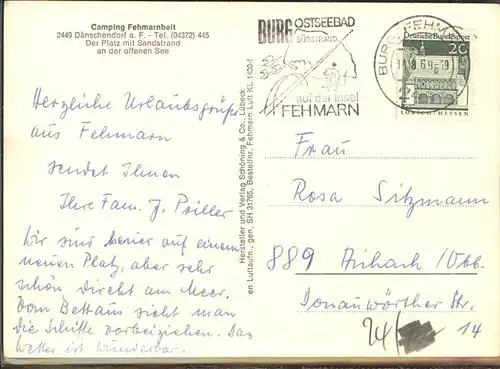 Camping Fehmarnbelt
2449 Dänschendorf a. F. - Tel. (04372) 445
Der Platz mit Sandstrand
an der offenen See
BURG OSTSEEBAD
SÜDSTRAND
auf der Insel
FEHMARN
BURG, FEHMARN
Deutsche Bundespost
20
LORSCH/HESSEN
Herzliche Urlaubsgrüße
aus Fehmarn
sendet Ihnen
Ihre Fam. J. Priller
Wir sind heuer auf einem
neuen Platz, aber sehr
schön direkt am Meer.
Vom Bett aus sieht man
die Schiffe vorbeiziehen. Das
Wetter ist wunderbar.
Hersteller und Verlag Schöning & Co., Lübeck
en Luftaufn., gen. SH 31765, Bestellnr. Fehmarn Luft KL 1430-1
Frau
Rosa Sitzmann
889 Aichach/Obb.
Donauwörther Str.
24/
14